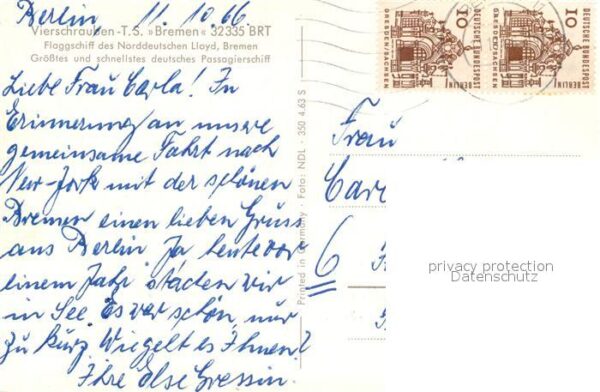 Berlin, 11.10.66
Vierschrauben-T.S. »Bremen« 32335 BRT
Flaggschiff des Norddeutschen Lloyd, Bremen
Größtes und schnellstes deutsches Passagierschiff
Liebe Frau Carla! In
Erinnerung an unsere
gemeinsame Fahrt nach
New-York mit der schönen
Bremen einen lieben Gruss
aus Berlin. Ja heute vor
einem Jahr stachen wir
in See. Es war schön, nur
zu kurz. Wie geht es Ihnen?
Ihre Else Gressin.
Printed in Germany · Foto: NDL · 350 4.63 S
10
DEUTSCHE BUNDESPOST
BERLIN
GREDEN/SACHSEN
10
DEUTSCHE BUNDESPOST
BERLIN
GREDEN/SACHSEN
Frau
Car
6
privacy protection
Datenschutz